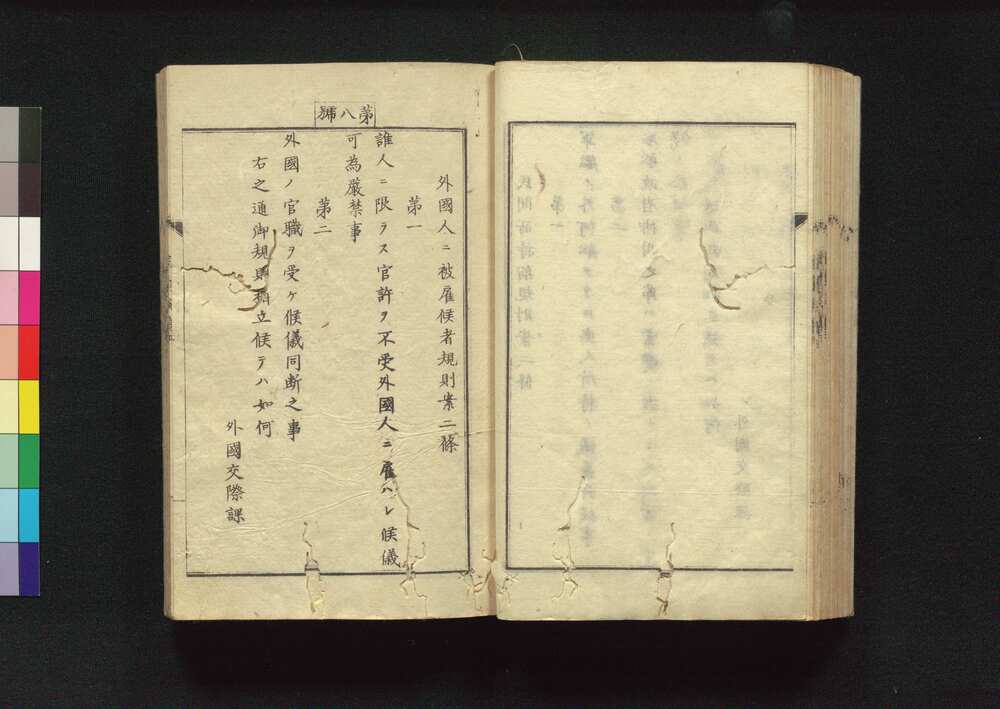 第八號
外國人ニ被雇候者規則案二條
第一
誰人ニ限ラス官許ヲ不受外國人ニ雇ハレ候儀
可為嚴禁事
第二
外國ノ官職ヲ受ケ候儀同断之事
右之通御規則相立候テハ如何
外國交際課